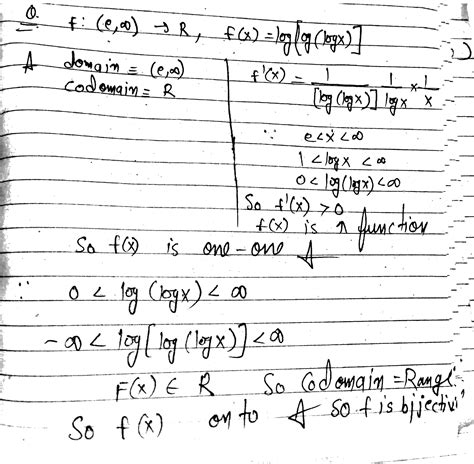 Q. f: (e,∞) → R, f(x) = log[log(logx)]
A domain = (e,∞)
codomain = R
f'(x) = 1/[log(logx)] 1/logx × 1/x
∵ e<x<∞
1<logx<∞
0<log(logx)<∞
So f'(x) >0
f(x) is ↑ function
So f(x) is one-one A
∵ 0 < log(logx) < ∞
-∞ < log[log(logx)] < ∞
F(x) ∈ R So Codomain = Range
So f(x) on to A So f is bijective